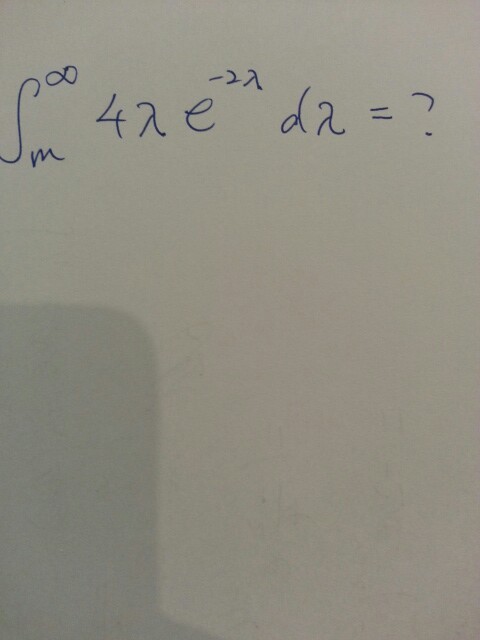 ∫_m^∞ 4λe^{-2λ} dλ = ?